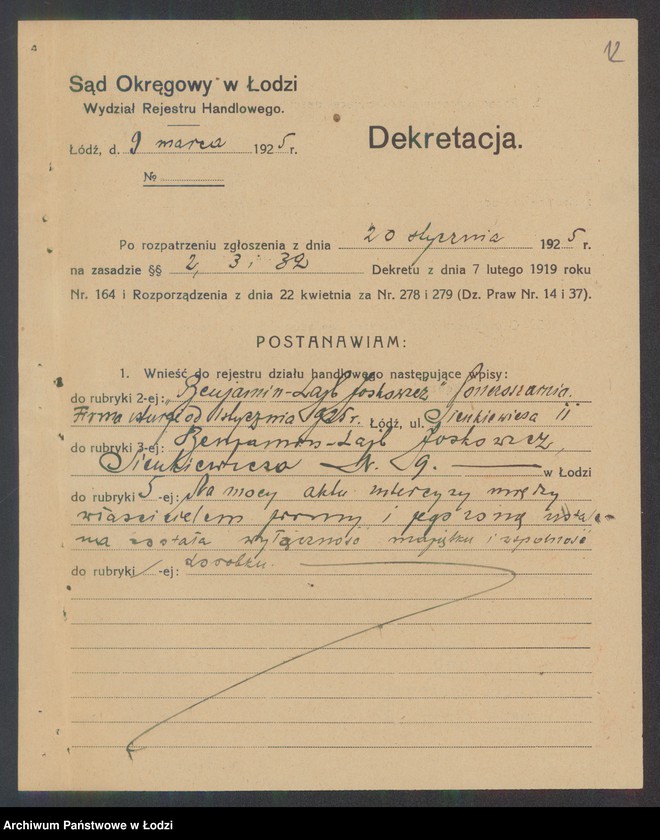 12
Sąd Okręgowy w Łodzi
Wydział Rejestru Handlowego.
Łódź, d. 9 marca 1925 r.
Dekretacja.
№
Po rozpatrzeniu zgłoszenia z dnia 20 stycznia 1925 r.
na zasadzie §§ 2, 3 i 32 Dekretu z dnia 7 lutego 1919 roku
Nr. 164 i Rozporządzenia z dnia 22 kwietnia za Nr. 278 i 279 (Dz. Praw Nr. 14 i 37).
POSTANAWIAM:
1. Wnieść do rejestru działu handlowego następujące wpisy:
do rubryki 2-ej: „Benjamin-Lajb Joskowicz"
Firma od 1 stycznia 1925 r. Łódź, ul. Sienkiewicza 11
do rubryki 3-ej: Benjamin-Lajb Joskowicz,
Sienkiewicza Nr. 29. w Łodzi
do rubryki 5-ej: Na mocy aktu intercyzy między
właścicielem firmy i jego żoną ustalo-
na została wyłączność majątku i wspólność
do rubryki -ej: dorobku.
Archiwum Państwowe w Łodzi